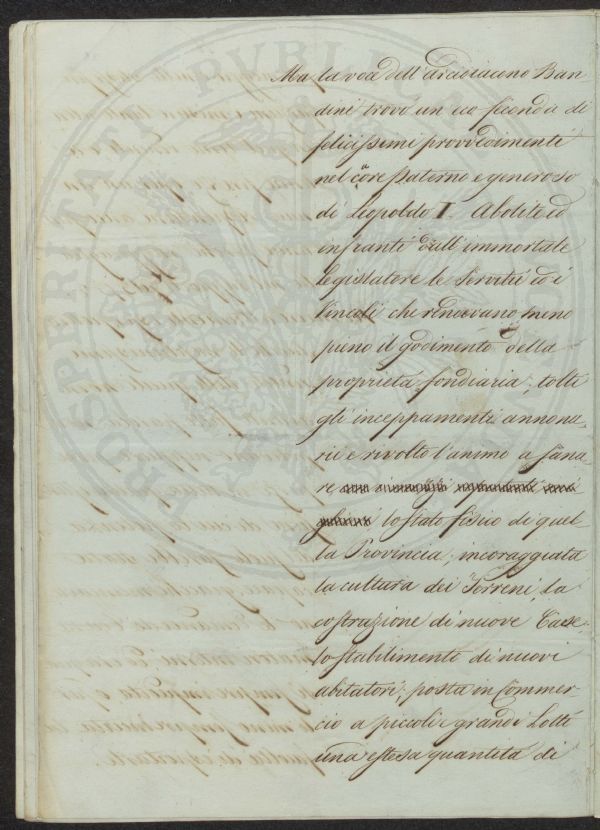 Ma la voce dell'arcidiacono Ban-
dini trovò un eco feconda di
felicissimi provvedimenti
nel cuore paterno e generoso
di Leopoldo I. Abolite ed
infranti dall'immortale
legislatore le Servitù ed i
Vincoli che rendevano meno
pieno il godimento della
proprietà fondiaria; tolti
gli inceppamenti annona-
rii e rivolto l'animo a sana-
re
lo stato fisico di quel-
la Provincia; incoraggiata
la cultura dei Terreni, la
costruzione di nuove Case,
lo stabilimento di nuovi
abitatori; posta in Commer-
cio a piccoli e grandi Lotti
una estesa quantità di
PROSPERITATI PVBLICAE